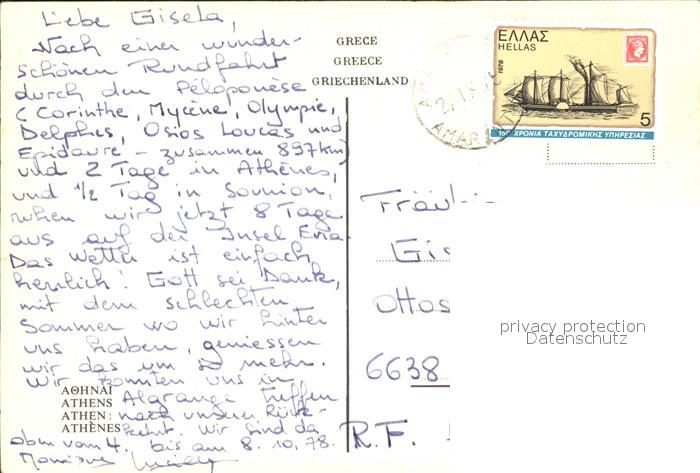 Liebe Gisela,
Nach einer wunder-
schönen Rundfahrt
durch den Péloponèse
( Corinthe, Mycène, Olympie,
Delphes, Osios Loucas und
Epidaure - zusammen 897 km)
und 2 Tage in Athènes,
und 1/2 Tag in Sounion,
ruhen wir jetzt 8 Tage
aus auf der Insel Evia.
Das Wetter ist einfach
herrlich! Gott sei Dank,
mit dem schlechten
Sommer wo wir hinter
uns haben, geniessen
wir das um so mehr.
Wir könnten uns in
Algrange treffen
nach unserer Rück-
kehr. Wir sind da
oben vom 4. bis am 8.10.78.
Monique
ΑΘΗΝΑΙ
ATHENS
ATHEN:
ATHÈNES
GRECE
GREECE
GRIECHENLAND
ΕΛΛΑΣ
HELLAS
1978
5
150 ΧΡΟΝΙΑ ΤΑΧΥΔΡΟΜΙΚΗΣ ΥΠΗΡΕΣΙΑΣ
Fräul
Gis
Ottos
6638
R.F.
privacy protection
Datenschutz